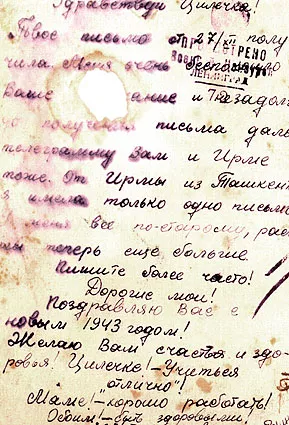 Здравствуй Цилечка!
Твое письмо от 27/XII полу
чила. Меня очень беспокоило
Ваше чание и Я задол
го получения письма дала
телеграмму Вам и Ирме
тоже. От Ирмы из Ташкент
я имела только одно письмо
У меня все по-старому, рас
ты теперь еще большие
Пишите более часто!
Дорогие мои!
Поздравляю Вас с
новым 1943 годом!
Желаю Вам счастья и здо-
ровья! Цилечке! – Учиться
„отлично"!
Маме! – хорошо работать!
Обоим! – быть здоровыми!
ПРОСМОТРЕНО
ЛЕНИНГРАД